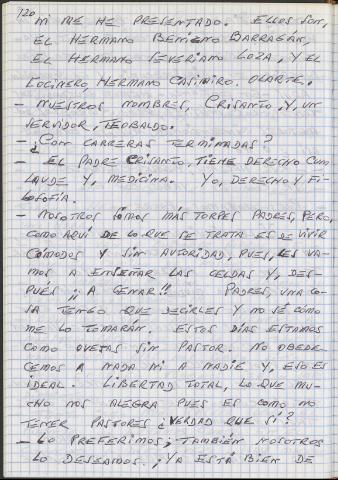 120
NI ME HE PRESENTADO. ELLOS SON,
EL HERMANO BENIGNO BARRAGÁN,
EL HERMANO SEVERIANO LOZA, Y EL
COCINERO, HERMANO CASIMIRO. OLARTE.
- NUESTROS NOMBRES, CRISANTO. Y, UN
SERVIDOR, TEOBALDO.
- ¿CON CARRERAS TERMINADAS?
- EL PADRE CRISANTO, TIENE DERECHO CUM
LAUDE Y, MEDICINA. YO, DERECHO Y FI-
LOSOFÍA.
- NOSOTROS SOMOS MÁS TORPES PADRES, PERO,
COMO AQUÍ DE LO QUE SE TRATA ES DE VIVIR
CÓMODOS Y SIN AUTORIDAD, PUES, LES VA-
MOS A ENSEÑAR LAS CELDAS Y, DES-
PUÉS ¡¡A CENAR!! PADRES, UNA CO-
SA TENGO QUE DECIRLES Y NO SÉ CÓMO
ME LO TOMARÁN. ESTOS DÍAS ESTAMOS
COMO OVEJAS SIN PASTOR. NO OBEDE-
CEMOS A NADA NI A NADIE Y, ESO ES
IDEAL. LIBERTAD TOTAL, LO QUE MU-
CHO NOS ALEGRA PUES ES COMO NO
TENER PASTORES ¿VERDAD QUE SÍ?
- LO PREFERIMOS; TAMBIÉN NOSOTROS
LO DESEAMOS. ¡YA ESTÁ BIEN DE